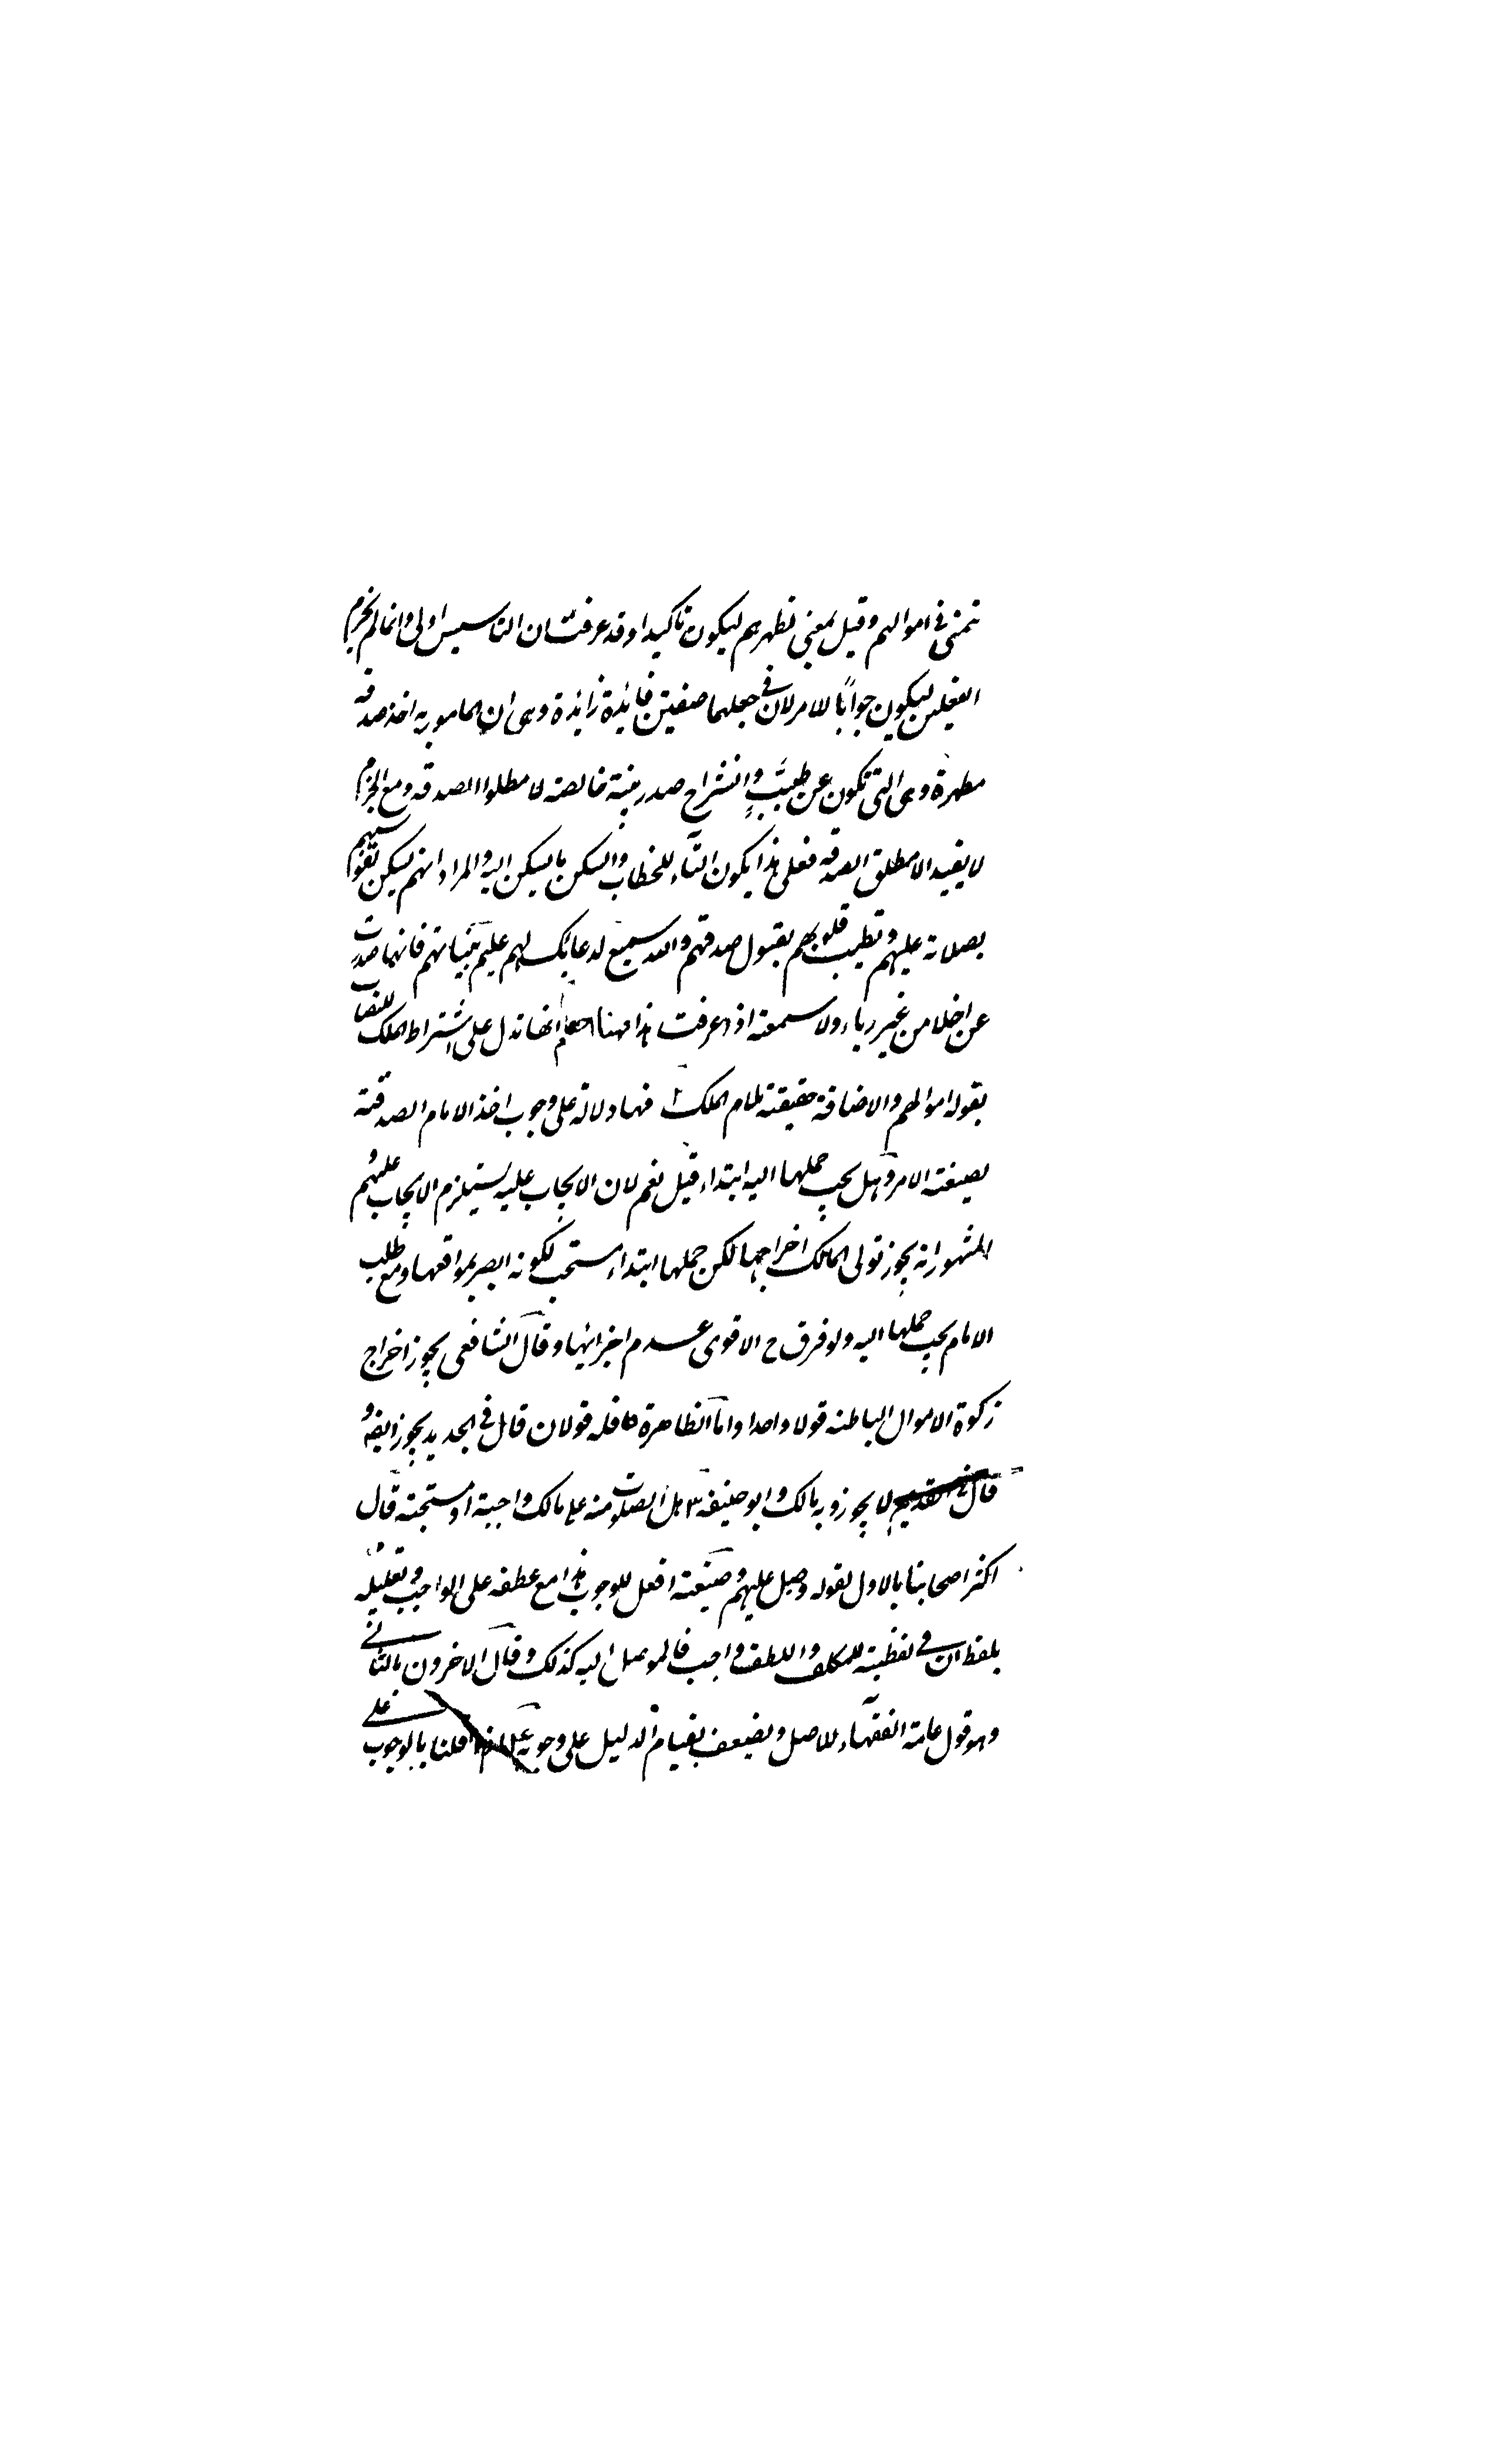 تنمى فى اموالهم وقيل بمعنى تطهرهم ليكون تاكيدا وقد عرفت ان التاسيس اولى وانما لم يجزم
الفعلين ليكون جوابًا للامر لان فى جعلهما صفتين فائدة زائدة وهى ان المامور به اخذ صدقة
مطهرة وهى التى تكون عن طيب وانشراح صدر بنية خالصة لا مطلق الصدقه ومع الجزم
لا يفيد الا مطلق الصدقه فعلى هذا يكون التاء للخطاب والسكن ما يسكن اليه والمراد انهم يسكن نفوسهم
بصلاته عليهم وتطيب قلوبهم بقبول صدقتهم والله سميع لدعائك لهم عليم بنياتهم فانها صدرت
عن اخلاص من غير رياء ولا سمعة اذا عرفت هذا فهنا احكام ا انها تدل على اشتراط الملك للنصاب
بقوله اموالهم والاضافة حقيقة للملك ب فيها دلالة على وجوب اخذ الامام الصدقة
بصيغة الامر وهل يجب حملها اليه ابتداء قيل نعم لان الايجاب عليه يستلزم الايجاب عليهم و
المشهور انه يجوز تولى المالك اخراجها لكن حملها ابتداء مستحب لكونه ابصر بمواقعها ومع طلب
الامام يجب حملها اليه ولو فرق ح الاقوى عدم اجزائها وقال الشافعى يجوز اخراج
زكوة الاموال الباطنه قولا واحدا واما الظاهرة فله قولان قال فى الجديد يجوز ايضا و
قال فى القديم لا يجوز وبه مالك وابو حنيفه ٣ هل الصلوت منه على مالك واجبة او مستحبة قال
اكثر اصحابنا بالاول لقوله وصل عليهم وصيغة افعل للوجوب هذا مع عطفه على الواجب وتعليله
بلفظ ان فى لفظية للمكلف واللطف واجب فالموصل اليه كذلك وقال الاخرون بالثانى
وهو قول عامة الفقهاء للاصل ويضعف بقيام الدليل على وجوبه قلنا بالوجوب على